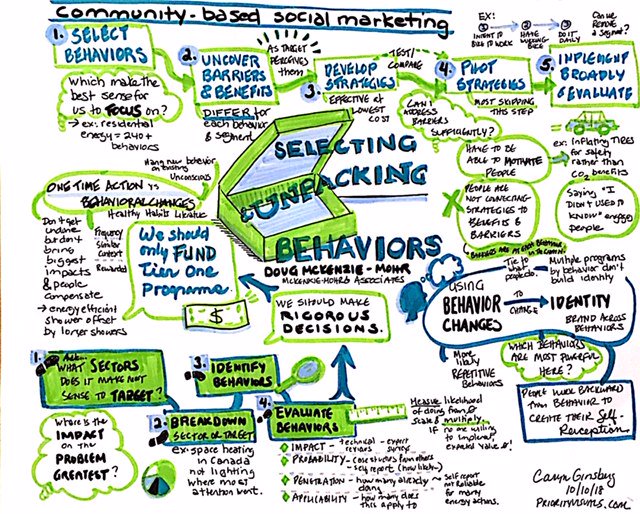 Community-based social marketing
1. SELECT
BEHAVIORS
Which make the
best sense for
us to FOCUS on?
→ ex: residential
energy = 240+
behaviors
2.
UNCOVER
BARRIERS
& BENEFITS
DIFFER for
each behavior
& segment
AS TARGET
PERCEIVES
them
3.
DEVELOP
STRATEGIES
EFFECTIVE at
LOWEST
COST
TEST/
COMPARE
4. PILOT
STRATEGIES
MOST SKIPPING
THIS STEP
CAN I
ADDRESS
BARRIERS
SUFFICIENTLY?
HAVE TO BE
ABLE TO MOTIVATE
PEOPLE
X PEOPLE
ARE NOT CONNECTING
STRATEGIES TO
BENEFITS &
BARRIERS
EX:
1 INTENT TO
BILL TO WORK
2 HAVE
WORKING
BIKE
3 DO IT
DAILY
Can we
REMOVE
a Segment?
5. IMPLEMENT
BROADLY
& EVALUATE
ex: Inflating TIRES
for safety
rather than
CO2 benefits
Saying "I
DIDN'T USED TO
KNOW" engages
people
SELECTING
UNPACKING
BEHAVIORS
DOUG MCKENZIE-MOHR
MCKENZIE-MOHR & ASSOCIATES
ONE TIME ACTION VS
BEHAVIORAL CHANGES
Healthy Habits Literature
Hang new behavior
on existing
Unconscious
Frequency
Similar
Context
Rewarded
Don't get
undone
but don't
bring
biggest
impacts
& people
compensate
→ energy efficient
shower offset
by longer showers
We should
only FUND
Tier One
Programs.
$
WE SHOULD MAKE
RIGOROUS
DECISIONS.
USING
BEHAVIOR
CHANGES
TO
CHANGE
IDENTITY
BRAND ACROSS
BEHAVIORS
Tie to
what
projects
Multiple programs
by behavior don't
build identity
More
likely
REPETITIVE
Behaviors
WHICH BEHAVIORS
ARE MOST POWERFUL
HERE?
PEOPLE WORK BACKWARD
FROM BEHAVIOR TO
CREATE THEIR Self-
Perception.
1. Ask...
WHAT SECTORS
DOES IT MAKE MOST
SENSE TO TARGET?
2. BREAKDOWN
SECTOR OR TARGET
ex: space heating
in Canada
not lighting
where most
attention went.
3. IDENTIFY
BEHAVIORS
4. EVALUATE
BEHAVIORS
Where is the
IMPACT
on the
PROBLEM
GREATEST?
Measure likelihood
of doing from 0
scale & multiply.
IF no one willing
to implement,
expected value 0!
IMPACT - technical - expert
reviews survey
PROBABILITY - case studies from others
self report (how likely)
PENETRATION - how many already
doing
→ Self report
not Reliable
for many
energy actions.
APPLICABILITY - how many does
this apply to
Caryn Ginsberg
10/10/18
PRIORITYVISUALS.COM